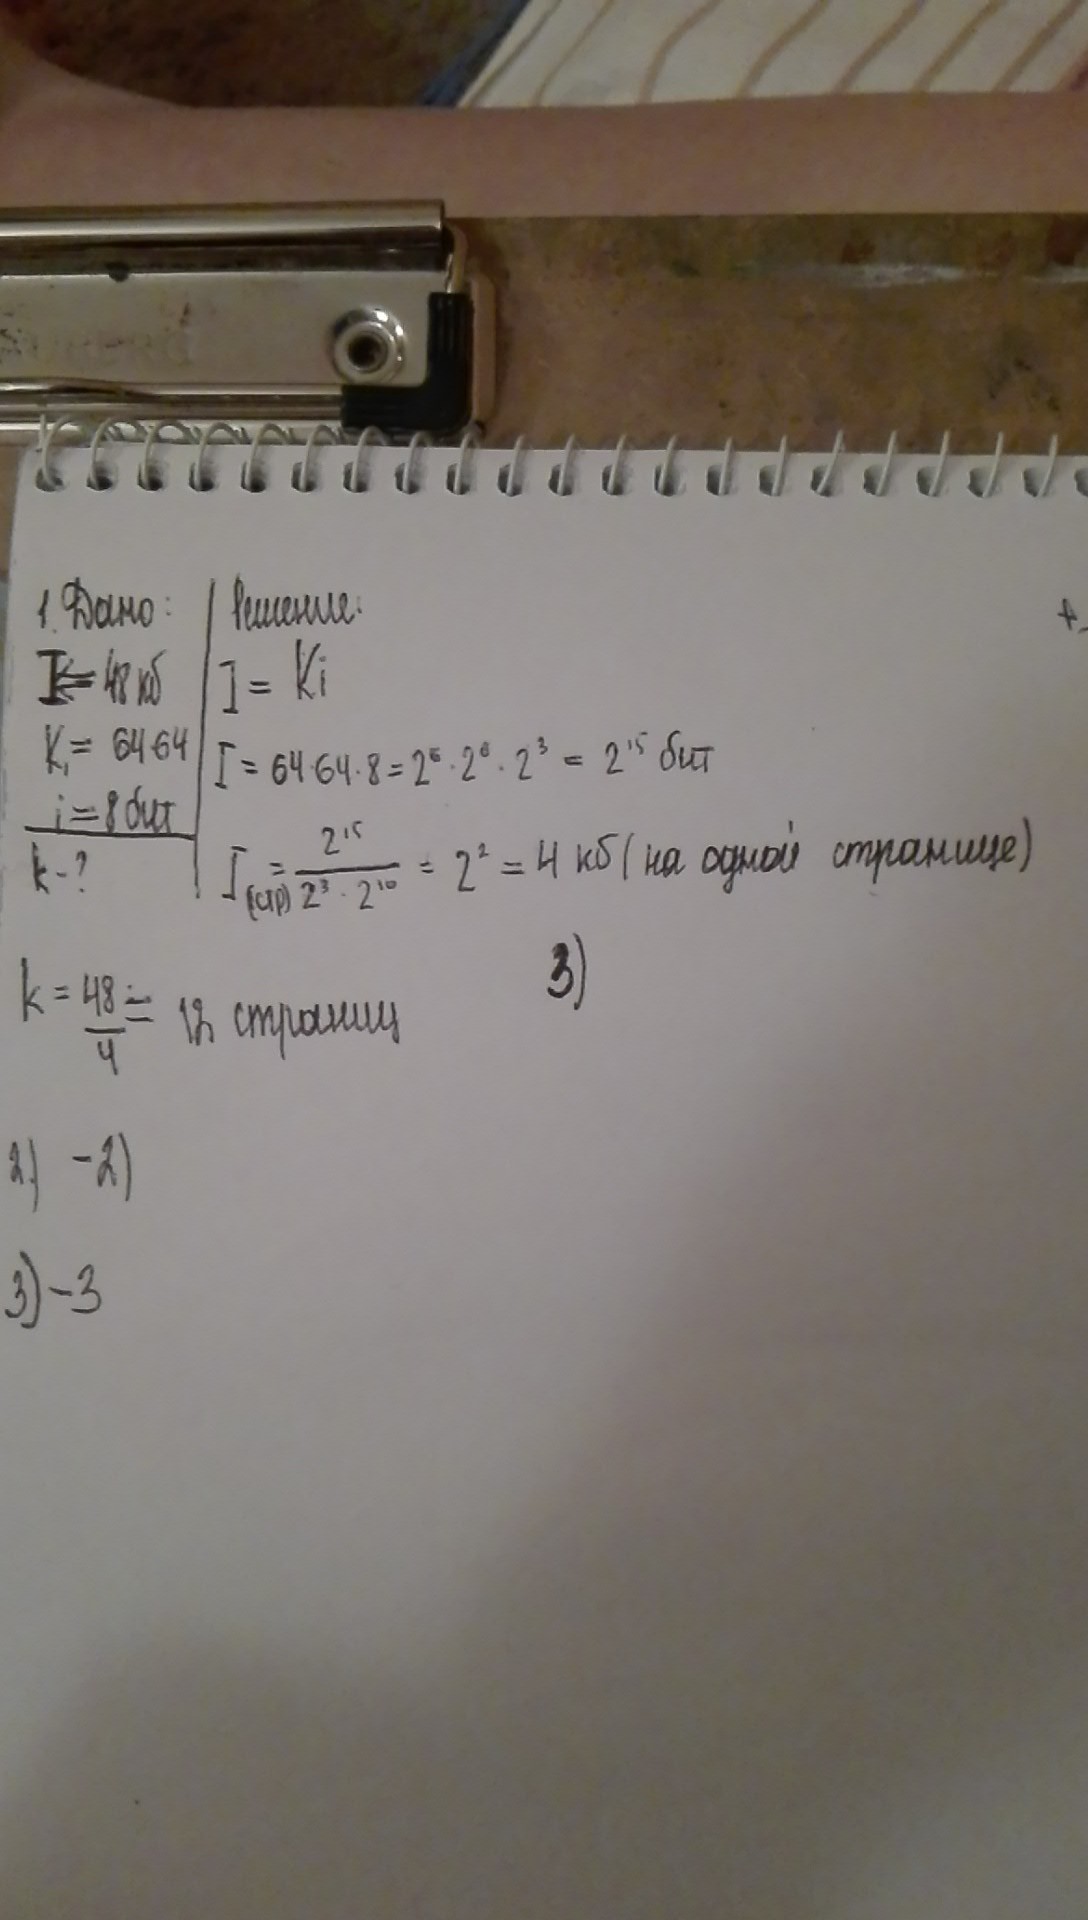 1. Дано:
I = 48 кб
K₁ = 64·64
i = 8 бит
k - ?
Решение:
I = Ki
I = 64·64·8 = 2⁶·2⁶·2³ = 2¹⁵ бит
I(стр) = 2¹⁵ / 2³·2¹⁰ = 2² = 4 кб (на одной странице)
k = 48/4 = 12 страниц
3)
2) -2)
3) -3